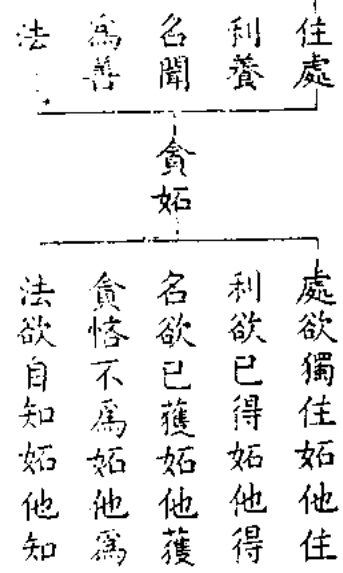 住處
利養
名聞
為善
法
貪妬
處欲獨住妬他住
利欲已得妬他得
名欲已獲妬他獲
貪悋不為妬他為
法欲自知妬他知